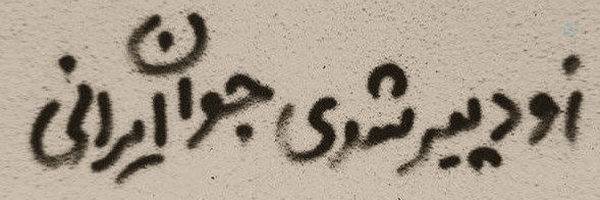 زود پیر شدی جوان ایرانی